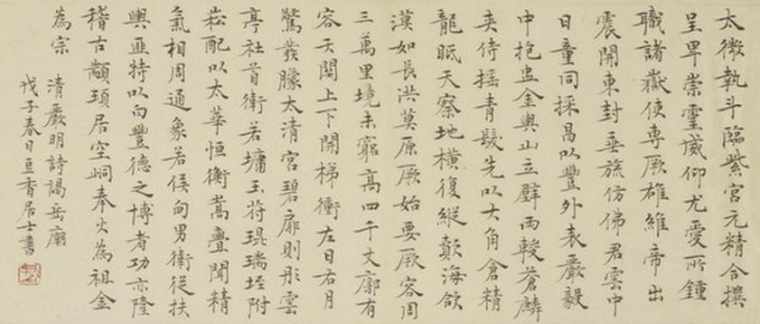 太微執斗臨紫宮元精合撰
呈卑崇靈威仰尤愛所鍾
職諸嶽使專厥雄維帝出
震開東封垂旒仿佛君雲中
日童同採昌以豐外表嚴毅
中抱盅金輿山立麟
夾侍搖青髮先以大角倉精
龍眠天察地橫復縱顛海欲
漠如長洪莫原厥始要厥容周
三萬里境未窮高四千丈廓有
容天關上下開梯衝左日右月
驚發朦太清宮碧扉則彤雲
亭社首衛若墉玉符琨瑞坿
崧配以太華恒衡嵩疊聞精
氣相周通象若侯甸男衛從扶
輿亶特以向豐德之博者功亦隆
稽古顓頊居空峒奉火為祖金
為宗
清嚴明詩謁岳廟
戊子春日亘香居士書